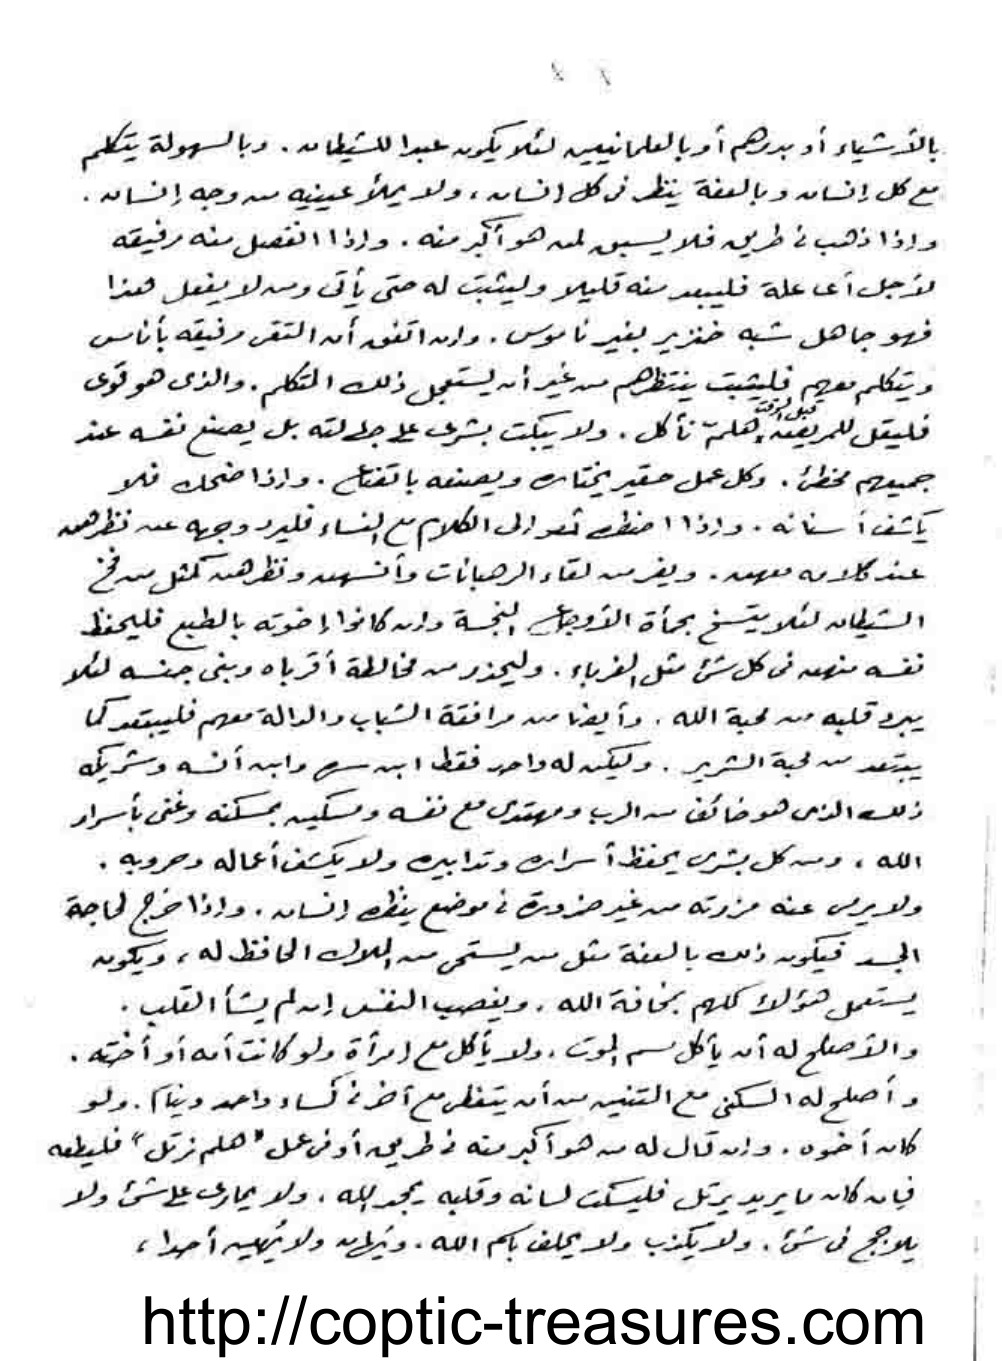 بالأشياء أو بدرهم أو بالعلمانيين لئلا يكون عبدا للشيطان . وبالسهولة يتكلم
مع كل إنسان وبالعفة ينظر فى كل إنسان ، ولا يملأ عينيه من وجه إنسان .
وإذا ذهب فى طريق فلا يسبق لمن هو أكبر منه . وإذا انفصل منه رفيقه
لأجل أعا علة فليبعد منه قليلا وليثبت له حتى يأتى ومن لا يفعل هذا
فهو جاهل شبه خنزير بغير ناموس . وإن اتفق أن التقى رفيقه بأناس
ويتكلم معهم فليثبت ينتظرهم من غير أن يستعجل ذلك المتكلم . والذى هو قوى
فليقل للمريض قبل الوقت هلمّ نأكل . ولا يبكت بشرى على جهالته بل يصنع نفسه عند
جميعهم مخطئ . وكل عمل حقير يختاره ويصنعه باتضاع . وإذا ضحك فلا
يكشف أسنانه . وإذا اضطر إلى الكلام مع النساء فليرد وجهه عن نظرهن
عند كلامه معهن . ويفر من لقاء الرهبانات وأنسهن ونظرهن كمثل من فخ
الشيطان لئلا يتسخ بحمأة الأوجاع النجسة وإن كانوا إخوته بالطبع فليحفظ
نفسه منهن فى كل شئ مثل الغرباء . وليحذر من مخالطة أقرباه وبنى جنسه لئلا
يبرد قلبه من محبة الله . وأيضا من مرافقة الشباب والدالة معهم فليبتعد كما
يبتعد من محبة الشرير . وليكن له واحد فقط ابن سره وابن أنسه وشريكه
ذلك الذى هو خائف من الرب ومهتدى مع نفسه ومسكين بمسكنه وغنى بأسرار
الله ، ومن كل بشرى يحفظ أسراره وتدابيره ولا يكشف أعماله وحروبه .
ولا يرمى عنه مزرته من غير ضرورة فى موضع ينظره إنسان . وإذا خرج لحاجة
الجسد فيكون ذلك بالعفة مثل من يستحى من الملاك الحافظ له ، ويكون
يستعمل هؤلاء كلهم بمخافة الله . ويغصب النفس إن لم يشأ القلب .
والأصلح له أن يأكل سم الموت ، ولا يأكل مع إمرأة ولو كانت أمه أو أخته .
وأصلح له السكنى مع التنين من أن يتغطى مع أخر فى كساء واحد وينام . ولو
كان أخوه . وإن قال له من هو أكبر منه فى طريق أو فى عمل "هلم نرتل" فليطعه
فإن كان ما يريد يرتل فليسكت لسانه وقلبه يمجد الله . ولا يمارى على شئ ولا
يلاجج فى شئ . ولا يكذب ولا يحلف باسم الله . ولا يُهين أحدا ،
http://coptic-treasures.com